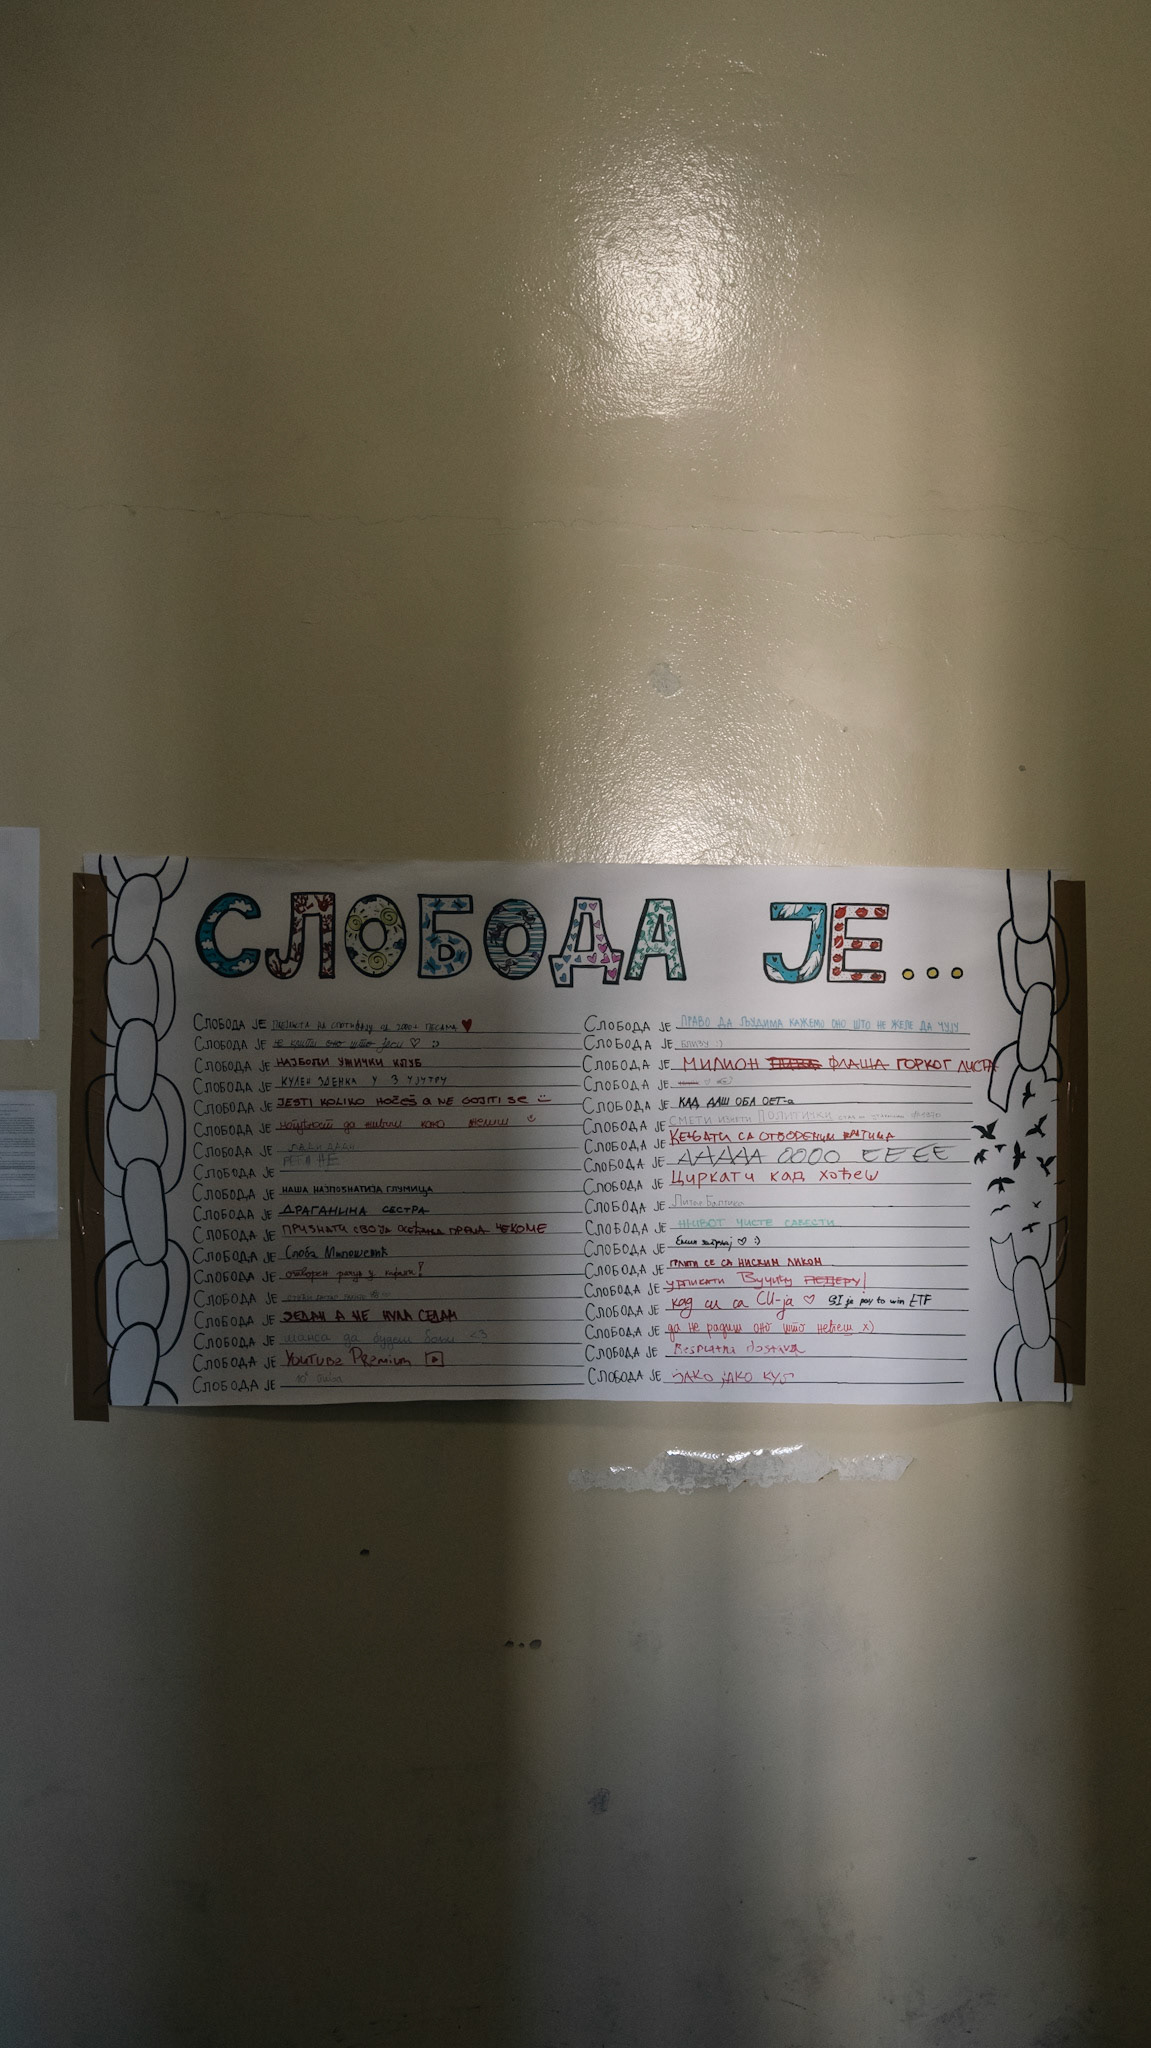 СЛОБОДА ЈЕ...
СЛОБОДА ЈЕ ПЛЕЈЛИСТА НА СПОТИФАЈУ ОД 2000+ ПЕСАМА ♥
СЛОБОДА ЈЕ не крити оно што јеси ♡ :)
СЛОБОДА ЈЕ НАЈБОЉИ УЖИЧКИ КЛУБ
СЛОБОДА ЈЕ КУЛЕН ЗДЕНКА У 3 УЈУТРУ
СЛОБОДА ЈЕ JESTI KOLIKO HOĆEŠ A NE GOJITI SE
СЛОБОДА ЈЕ могућност да живиш како желиш
СЛОБОДА ЈЕ
СЛОБОДА ЈЕ
СЛОБОДА ЈЕ НАША НАЈПОЗНАТИЈА ГЛУМИЦА
СЛОБОДА ЈЕ ДРАГАНИНА СЕСТРА
СЛОБОДА ЈЕ ПРИЗНАТИ СВОЈА ОСЕЋАЊА ПРЕМА НЕКОМЕ
СЛОБОДА ЈЕ Слоба Милошевић
СЛОБОДА ЈЕ отворен рачун у кафани!
СЛОБОДА ЈЕ
СЛОБОДА ЈЕ ЈЕДАН А НЕ НУЛА СЕДАМ
СЛОБОДА ЈЕ шанса да будеш бољи <3
СЛОБОДА ЈЕ YOUTUBE Premium
СЛОБОДА ЈЕ
СЛОБОДА ЈЕ ПРАВО ДА ЉУДИМА КАЖЕМО ОНО ШТО НЕ ЖЕЛЕ ДА ЧУЈУ
СЛОБОДА ЈЕ БЛИЗУ :)
СЛОБОДА ЈЕ МИЛИОН ФЛАША ГОРКОГ ЛИСТА
СЛОБОДА ЈЕ
СЛОБОДА ЈЕ КАД ДАШ ОБА ОЕТ-а
СЛОБОДА ЈЕ СМЕТИ ИЗНЕТИ ПОЛИТИЧКИ
СЛОБОДА ЈЕ КЕЊАТИ СА ОТВОРЕНИМ ВРАТИМА
СЛОБОДА ЈЕ АААAA OOOO EEEEE
СЛОБОДА ЈЕ Циркати кад хоћеш
СЛОБОДА ЈЕ
СЛОБОДА ЈЕ ЖИВОТ ЧИСТЕ САВЕСТИ
СЛОБОДА ЈЕ ♡ :)
СЛОБОДА ЈЕ СА НИСКИМ ЛИКОМ
СЛОБОДА ЈЕ Вучићу ПЕДЕРУ!
СЛОБОДА ЈЕ кад си са СИ-ја ♡ SI je pay to win ETF
СЛОБОДА ЈЕ да не радиш оно што нећеш x)
СЛОБОДА ЈЕ Besplatna dostava
СЛОБОДА ЈЕ ЈАКО ЈАКО КУЛ